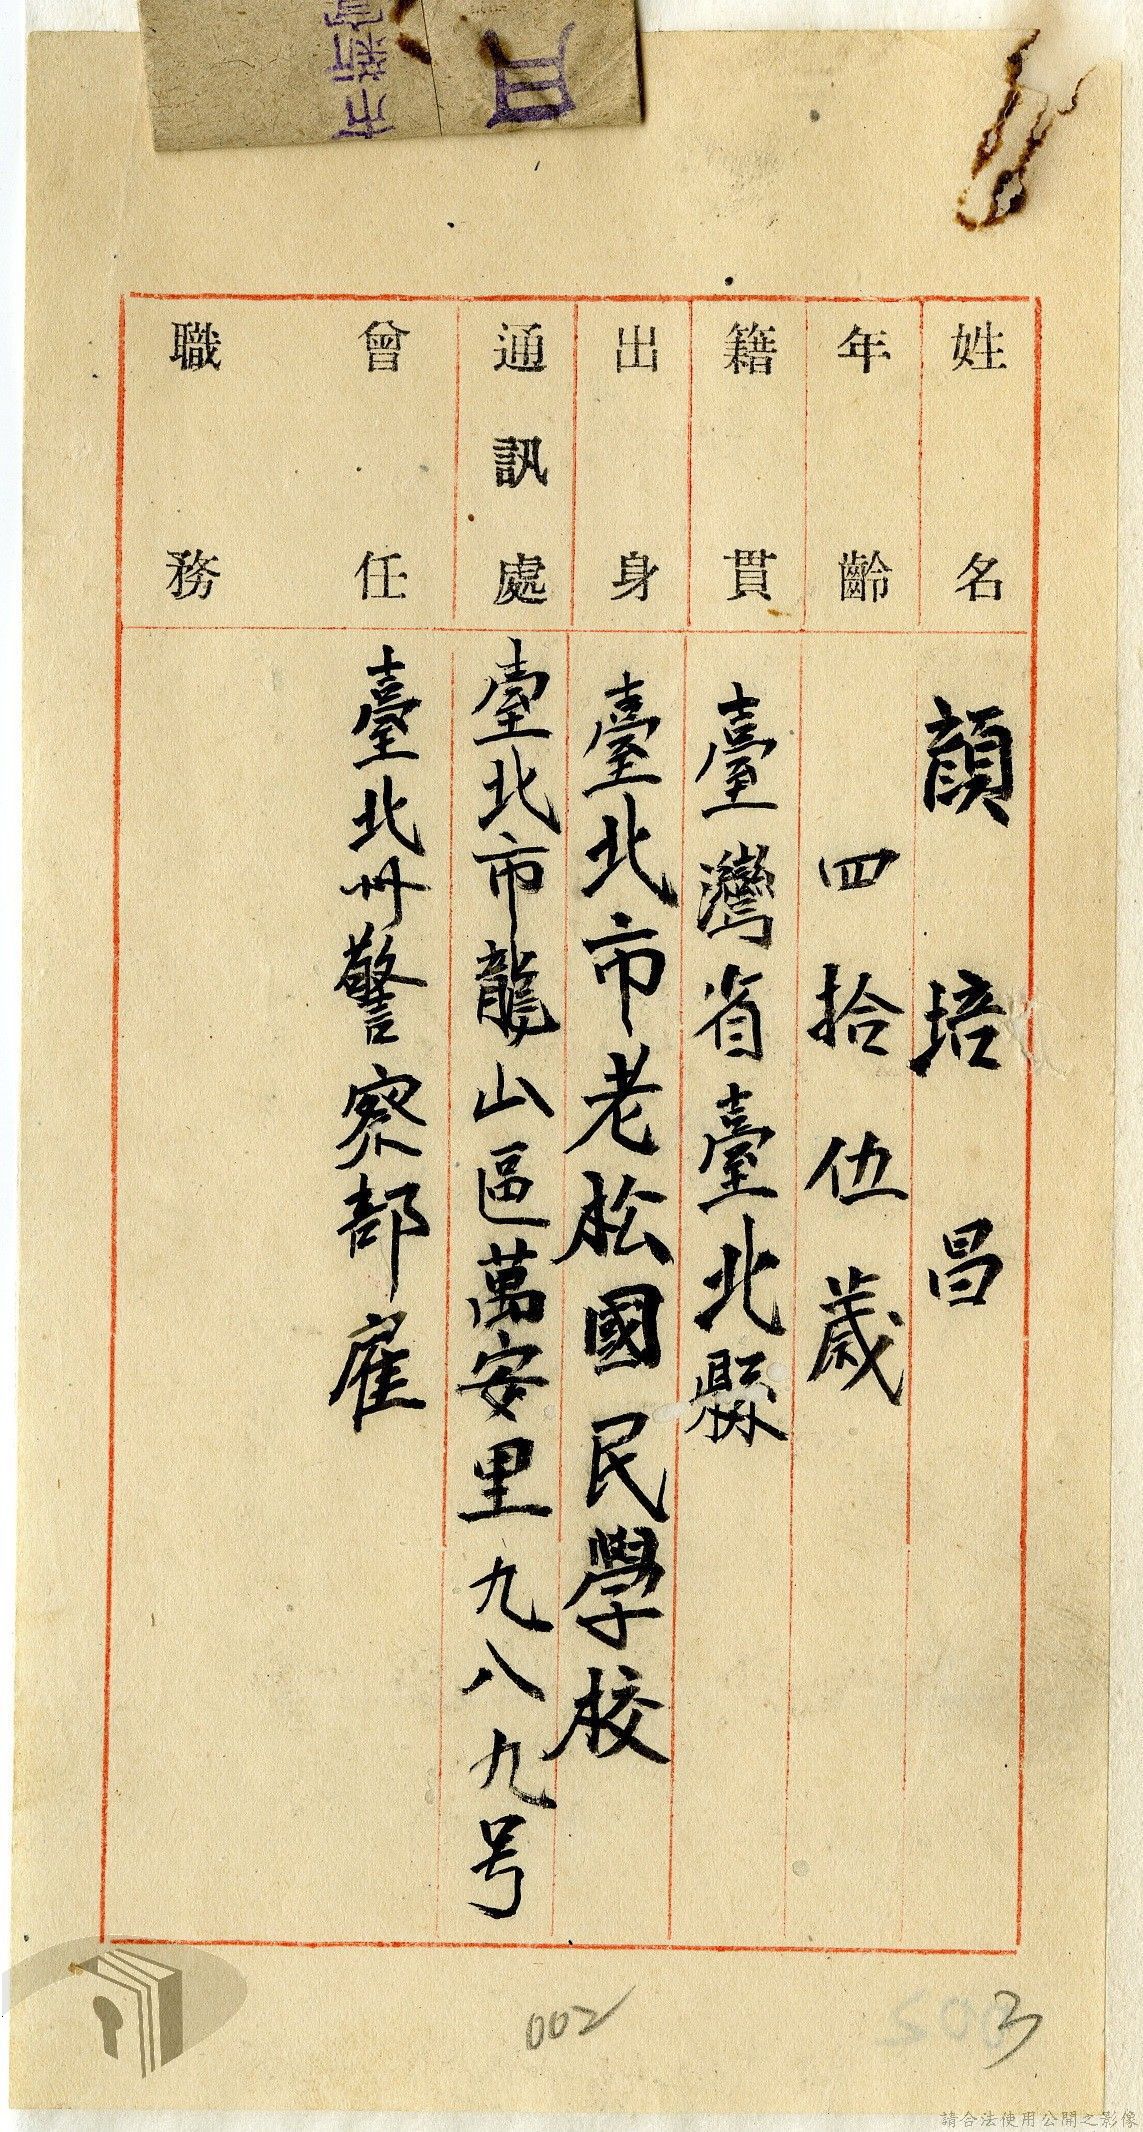 姓名 顔培昌
年齡 四拾伍歲
籍貫 臺灣省臺北縣
出身 臺北市老松國民學校
通訊處 臺北市龍山區萬安里九八九号
曾任職務 臺北州警察部雇
002
3
請合法使用公開之影像